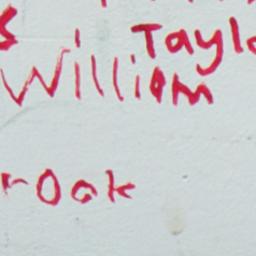 s Taylo
William
roak